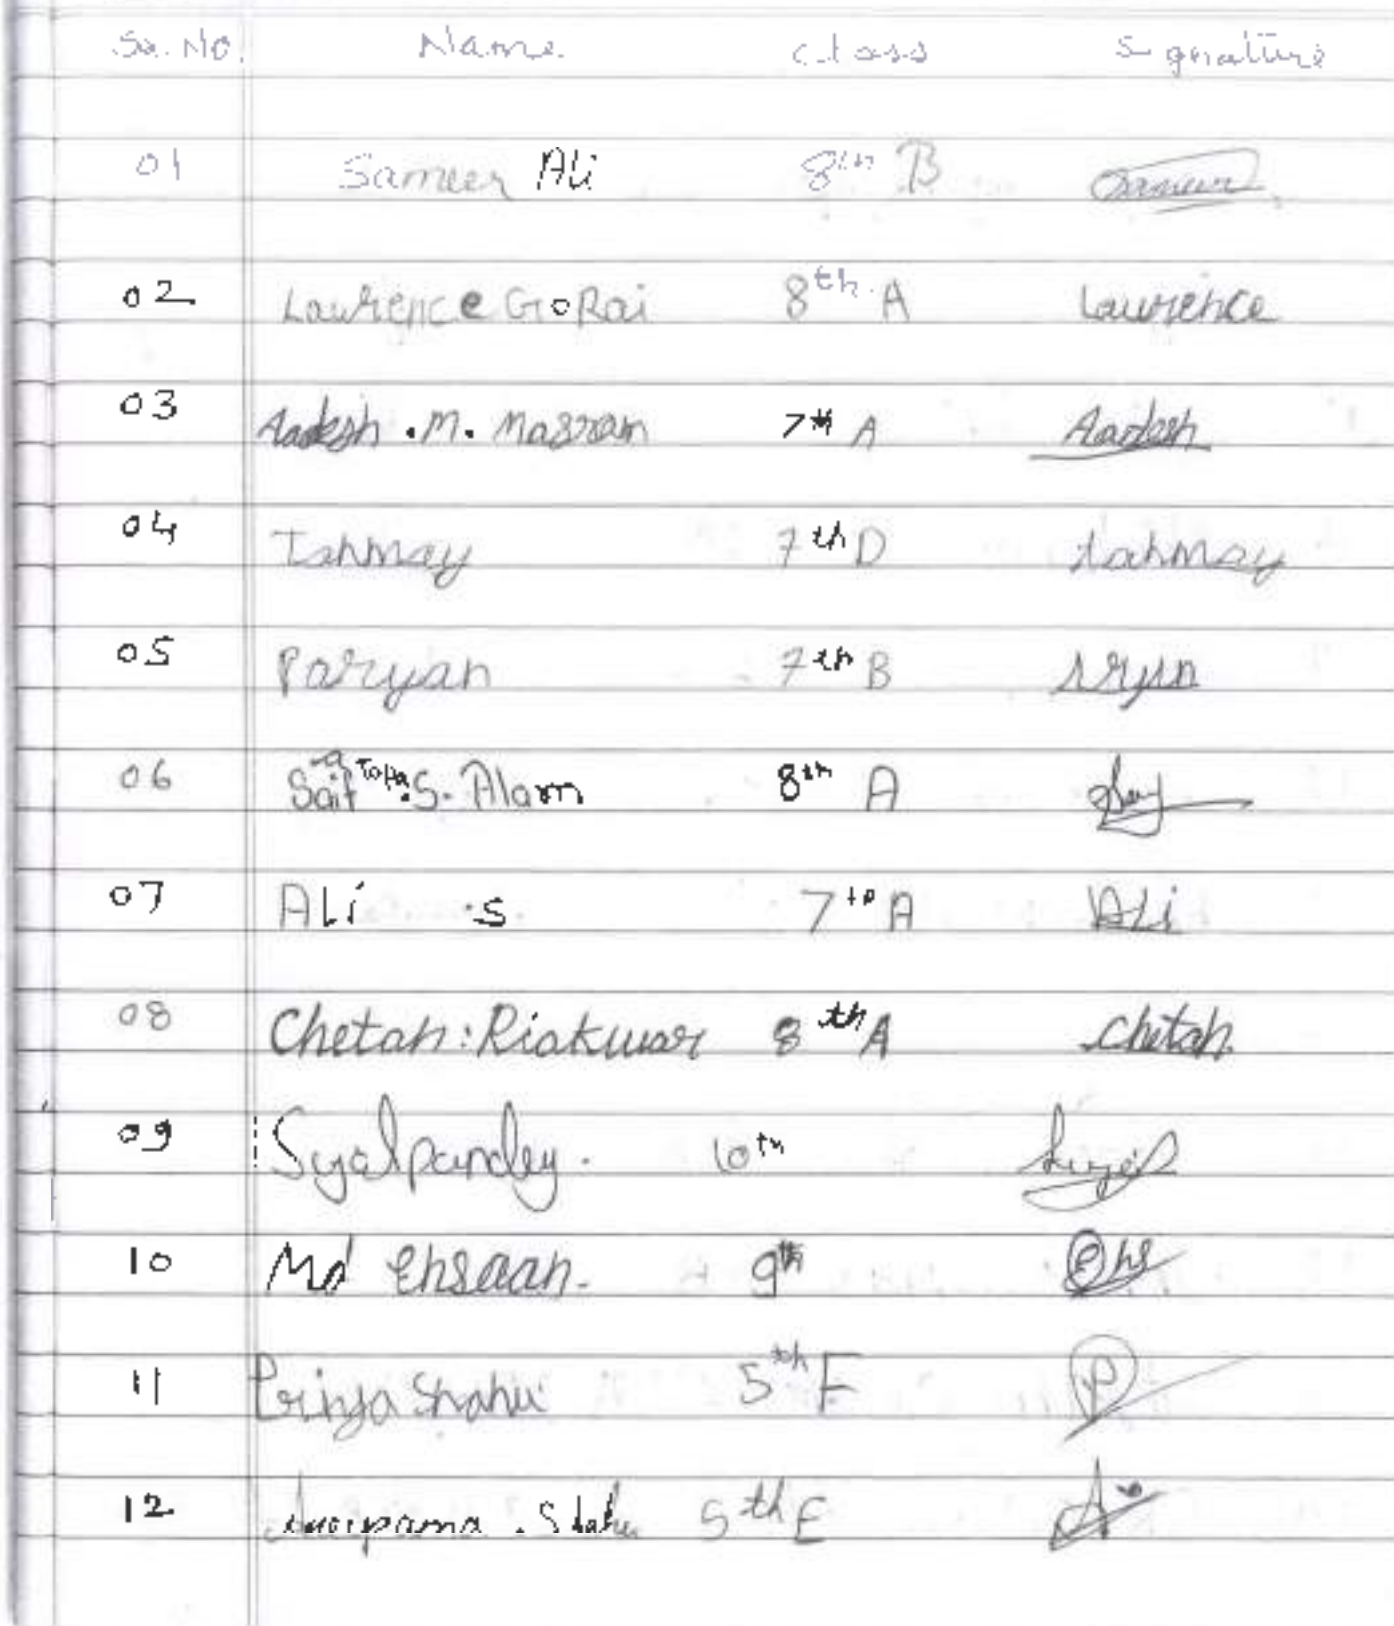 Sr. No. Name Class Signature
01 Sameer Ali 8th B Sameer
02 Lawrence GoRai 8th A Lawrence
03 Aadesh .M. Masram 7th A Aadesh
04 Tanmay 7th D tanmay
05 Paryan 7th B
06 Saif S. Alam 8th A
07 ALi .S 7th A ALi
08 Chetan: Riakwar 8th A chetan
09 Syalpandey. 10th
10 Md Ehsaan. 9th Ehs
11 Priya Shahu 5th F P
12 Anupama . Shahu 5th E A